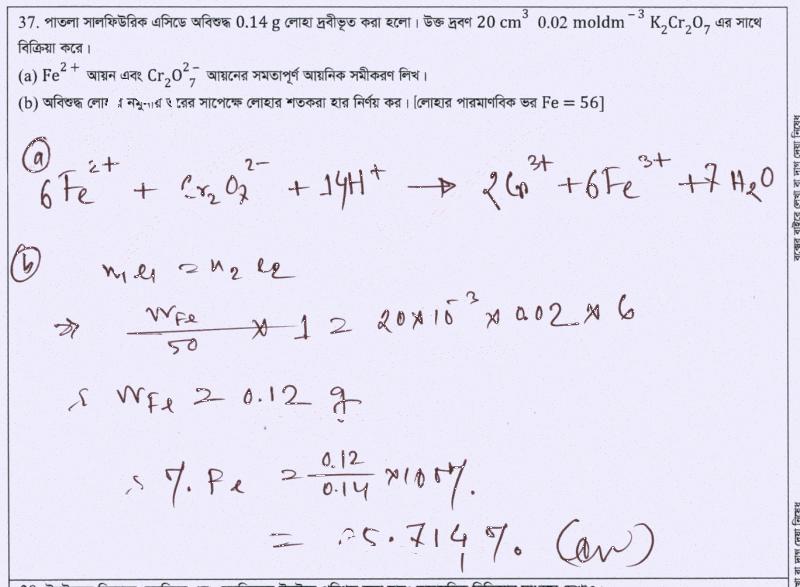 37. পাতলা সালফিউরিক এসিডে অবিশুদ্ধ 0.14 g লোহা দ্রবীভূত করা হলো। উক্ত দ্রবণ 20 cm³ 0.02 moldm⁻³ K₂Cr₂O₇ এর সাথে
বিক্রিয়া করে।
(a) Fe²⁺ আয়ন এবং Cr₂O₇²⁻ আয়নের সমতাপূর্ণ আয়নিক সমীকরণ লিখ।
(b) অবিশুদ্ধ সাপেক্ষে লোহার শতকরা হার নির্ণয় কর। [লোহার পারমাণবিক ভর Fe = 56]
(a) 6Fe²⁺ + Cr₂O₇²⁻ + 14H⁺ → 2Cr³⁺ + 6Fe³⁺ + 7H₂O
(b) n₁e₁ = n₂e₂
⇒ W_Fe/50 × 1 = 20×10⁻³ × 0.02 × 6
∴ W_Fe = 0.12 g
∴ % Fe = 0.12/0.14 × 100%
= 5.714%. (Ans)
বক্সের বাইরে লেখা বা দাগ দেয়া নিষেধ